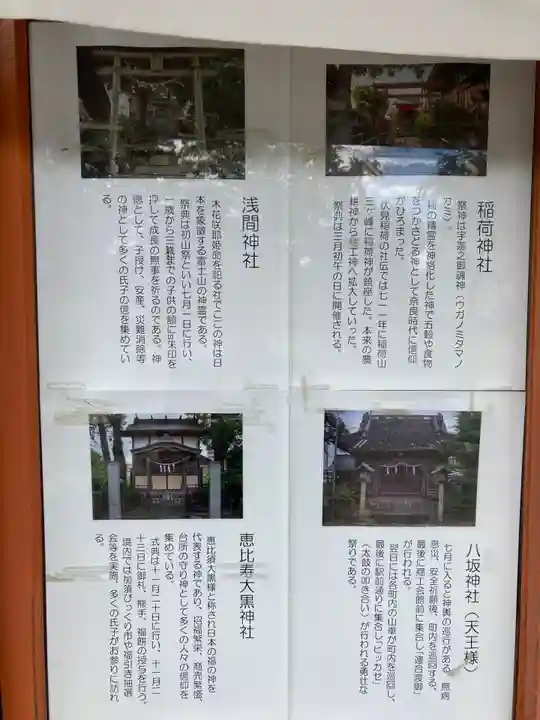 稲荷神社
祭神は宇迦之御魂神（ウガノミタマノ
カミ）。
の精霊を神格化した神で五穀や食物
をつかさどる神として奈良時代に信仰
がひろまった。
伏見稲荷の社伝では七一一年に稲荷山
三ヶ峰に稲荷神が鎮座した。本来の農
耕神から商工神へ拡大していった。
祭典は三月初午の日に開催される。
浅間神社
木花咲耶姫命を祀る社でここの神は日
本を象徴する富士山の神霊である。
祭典は初山祭といい七月一日に行い、
一歳から三歳までの子供の額に朱印を
押して成長の無事を祈るのである。神
徳として、子授け、安産、災難消除等
の神として多くの氏子の信を集めてい
る。
八坂神社（天王様）
七月に入ると神輿の巡行がある。無病
息災、安全祈願後、町内を巡回する。
最後に商工会館前に集合し「連合渡御」
が行われる。
翌日には各町内の山車が町内を巡回し、
最後に駅前通りに集合し「ヒッカセ」
（太鼓の叩き合い）が行われる勇壮な
祭りである。
恵比寿大黒神社
恵比須大黒様と称され日本の福の神を
代表する神であり、招福繁栄、商売繁盛、
台所の守り神として多くの人々の信仰を
集めている。
式典は十一月二十日に行い、十一月二
十三日に御札、熊手、福餅の授与を行う。
境内では加須びっくり市や福引き抽選
会等を実施、多くの氏子がお参りに訪れ
る。